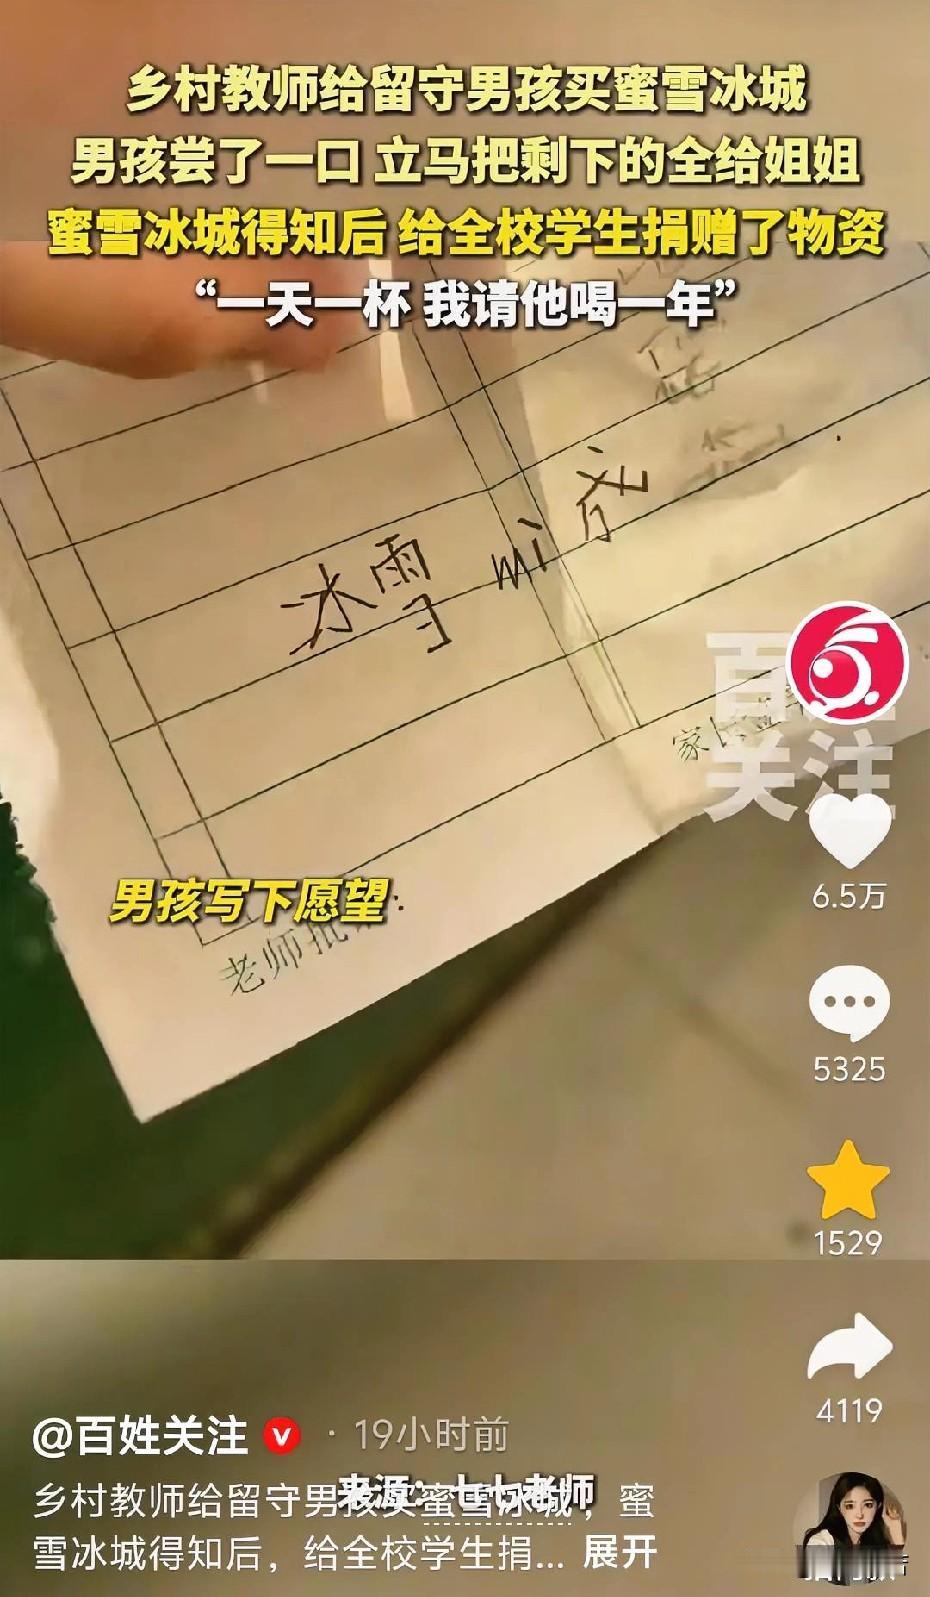 乡村教师给留守男孩买蜜雪冰城
男孩尝了一口 立马把剩下的全给姐姐
蜜雪冰城得知后 给全校学生捐赠了物资
“一天一杯 我请他喝一年”
冰雪 mi 成
百姓
关注
家长
6.5万
男孩写下愿望
老师批
:
5325
1529
4119
@百姓关注 · 19小时前
来源：七七老师
乡村教师给留守男孩买蜜雪冰城，蜜
雪冰城得知后，给全校学生捐... 展开